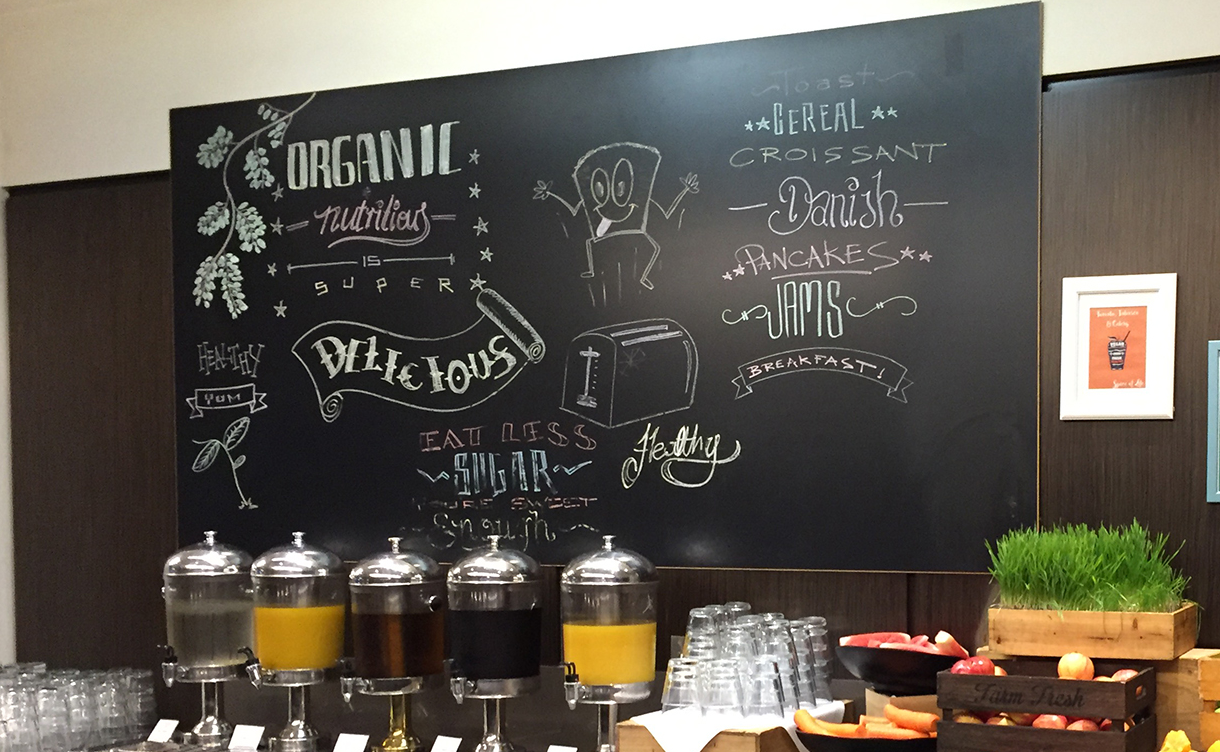 ORGANIC
nutritious
IS
SUPER
DELICIOUS
HEALTHY
YUM
EAT LESS
SUGAR
YOURE SWEET
Enough
Healthy
Toast
CEREAL
CROISSANT
Danish
PANCAKES
JAMS
BREAKFAST!
Farm Fresh